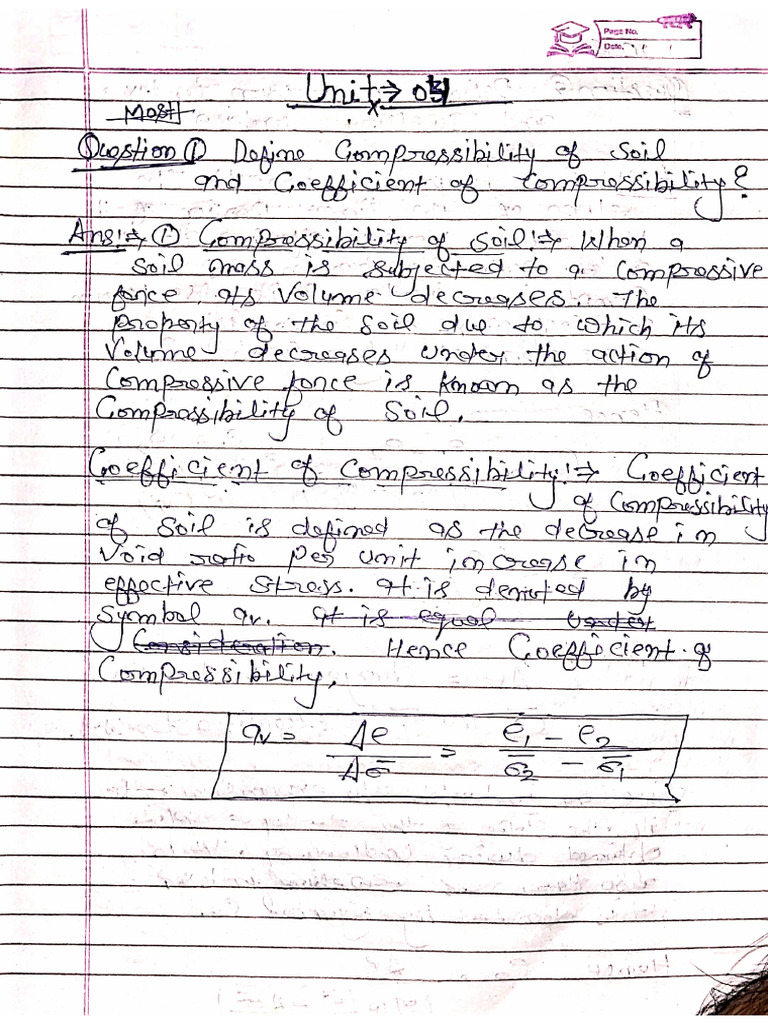 Page No.
Date.
Unit ⇒ 05
Most
Question ① Define Compressibility of Soil
and Coefficient of Compressibility?
Ans:⇒ ① Compressibility of Soil:⇒ When a
Soil mass is subjected to a compressive
force, its Volume decreases. The
property of the Soil due to which its
Volume decreases under the action of
Compressive force is known as the
Compressibility of Soil.
Coefficient of Compressibility:⇒ Coefficient
of Compressibility
of Soil is defined as the decrease in
Void ratio per unit increase in
effective stress. It is denoted by
Symbol av. It is equal under
Consideration. Hence Coefficient of
Compressibility.
av = Δe / Δσ̅ = e₁ - e₂ / σ̅₂ - σ̅₁